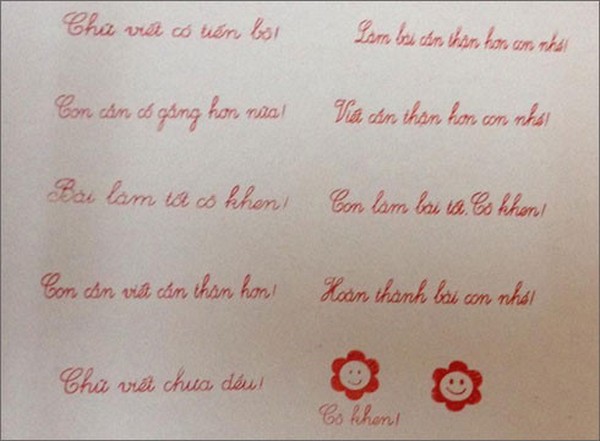 Chữ viết có tiến bộ!
Làm bài cẩn thận hơn con nhé!
Con cần cố gắng hơn nữa!
Viết cẩn thận hơn con nhé!
Bài làm tốt cô khen!
Con làm bài tốt. Cô khen!
Con cần viết cẩn thận hơn!
Hoàn thành bài con nhé!
Chữ viết chưa đều!
Cô khen!